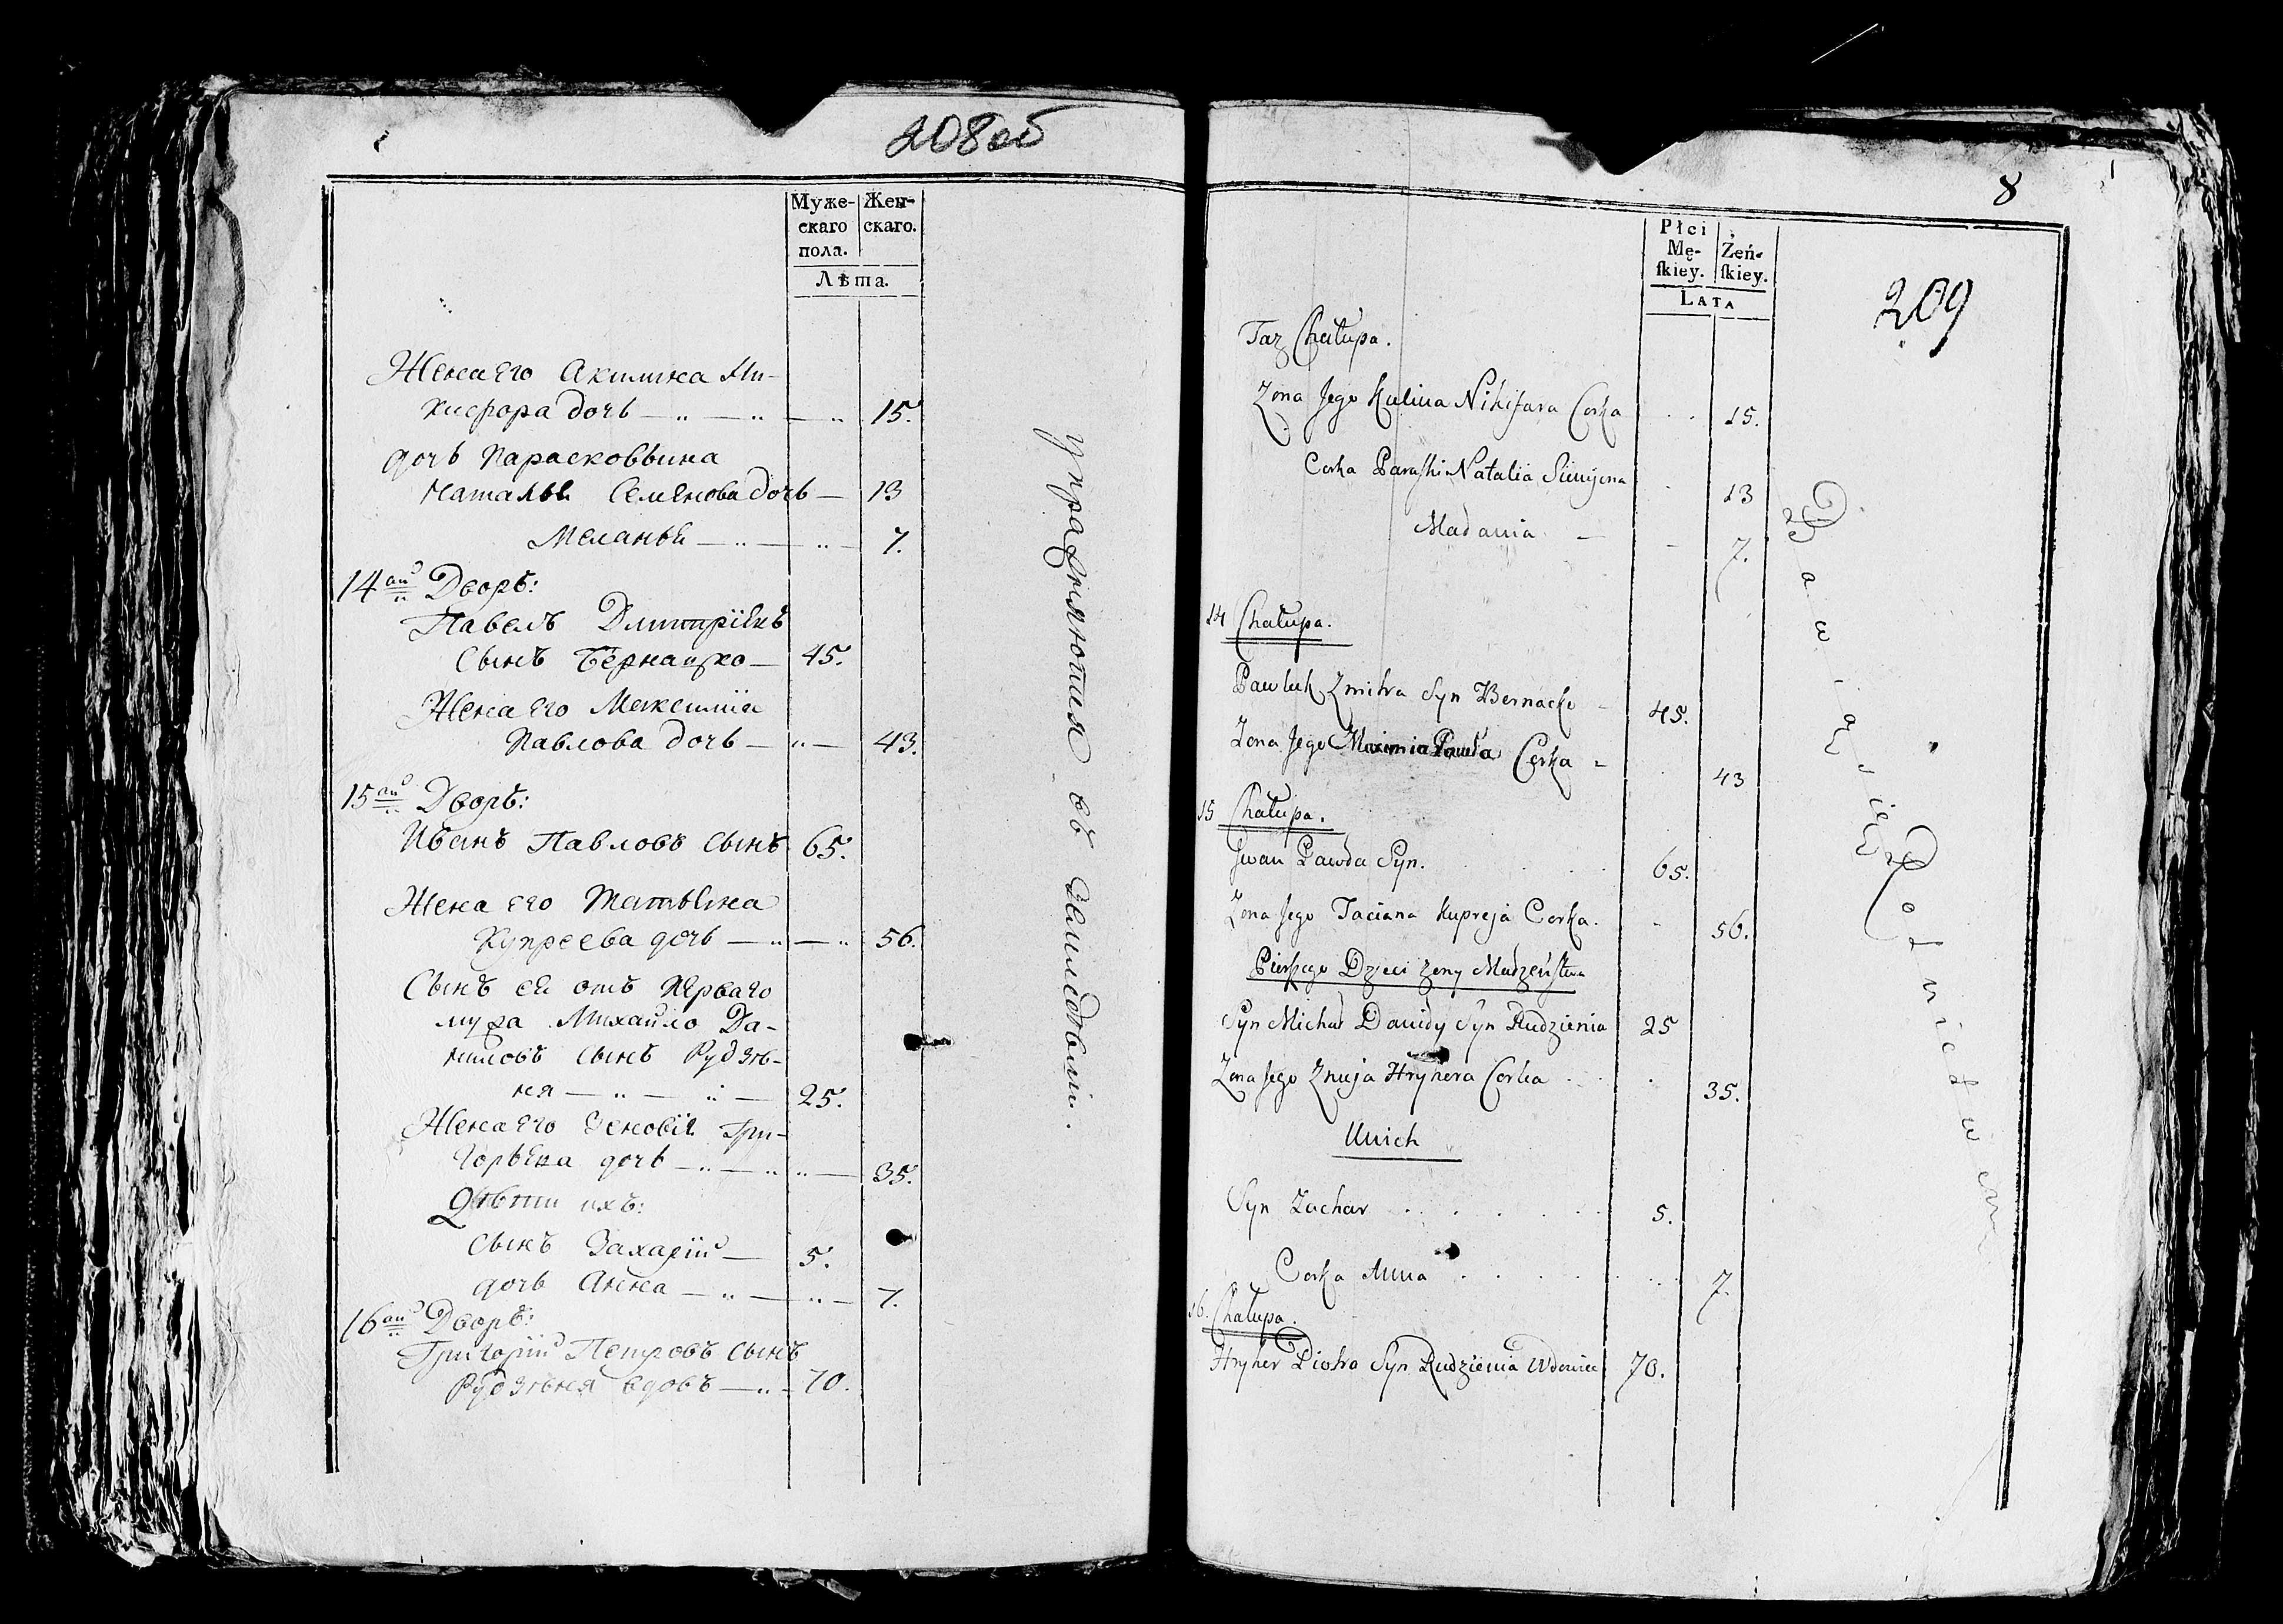 208 об
Муже-
скаго
пола.
Жен-
скаго.
Лѣта.
Жена его Акилина Ни-
кифора дочь 15.
дочь Парасковьина
Наталья Семенова дочь 13
Меланья 7.
14ый Дворъ:
Павелъ Дмитріевъ
сынъ Бернацко 45.
Жена его Максимія
Павлова дочь 43.
15ый Дворъ:
Иванъ Павловъ сынъ 65.
Жена его Татьяна
Купреева дочь 56.
Сынъ ея отъ перваго
мужа Михайло Да-
ниловъ сынъ Рудзѣ-
ня 25.
Жена его Зеновія Гри-
горьева дочь 35.
Дѣти ихъ:
сынъ Захарій 5.
дочь Анна 7.
16ый Дворъ:
Григорій Петровъ сынъ
Рудзѣня вдовъ 70.
упражняются въ земледѣліи.
8
209
Płci
Mę-
ſkiey.
Żeń-
ſkiey.
LATA
Taz Chałupa.
Zona Jego Kulina Nikifara Corka 15.
Corka Paraſki Natalia Siemjona 13
Małania 7.
14 Chałupa.
Pawluk Zmitra Syn Bernacko 45.
Zona Jego Maximia Pawła Corka 43
15 Chałupa.
Jwan Pawła Syn. 65.
Zona Jego Taciana Kupreja Corka. 56.
Pierſzego Dzieci Zony Małżeńſtwa
Syn Michał Dawidy Syn Rudzienia 25
Zona Jego Hryhera Corka 35.
Uuich
Syn Zachar 5.
Corka Anna 7.
16. Chałupa.
Hryher Piotra Syn Rudzienia Wdowiec 70.
Bawią się Rolnictwem